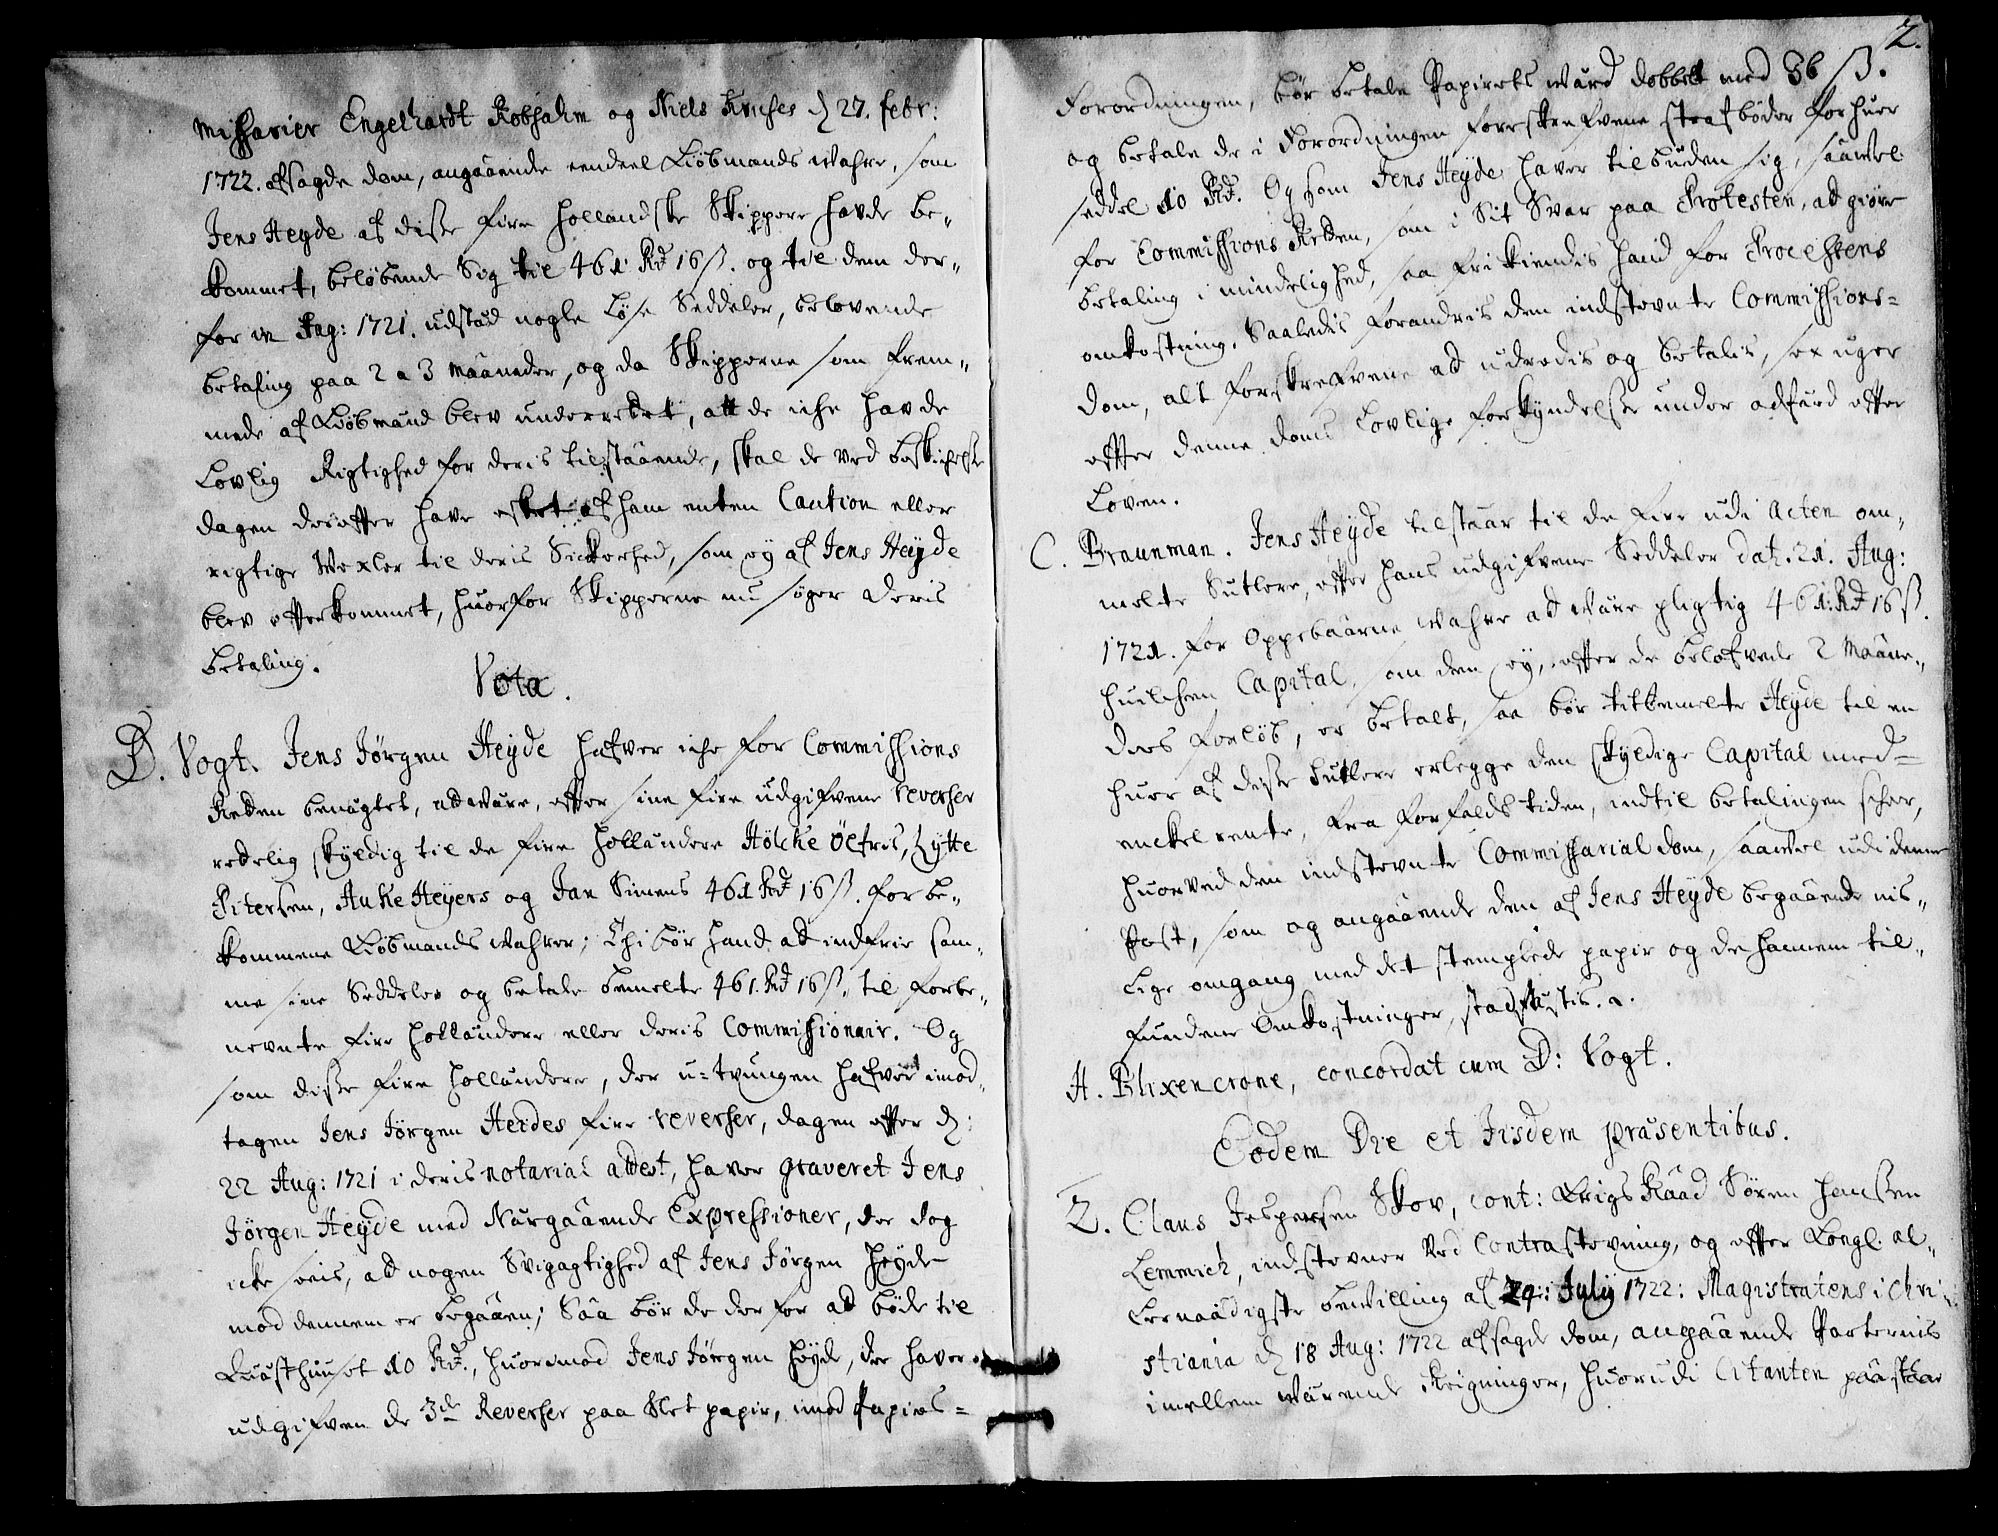 missarier Engelhardt Robsahm og Niels Kruses d 27. febr:
1722. afsagde dom, angaaende eendeel Kiøbmands wahre, som
Jens Heyde af disse fire hollandske Skippere hafde be-
kommet, beløbende Sig til 461 Rd 16 ß. og til dem der-
for in Aug: 1721. udstæd nogle Løse Seddeler, belovende
betaling paa 2 a 3 maaneder, og da Skipperne som frem-
mede af Kiøbmænd blev underrettet, att de iche hafde
Lovlig Rigtighed for deris tilstaaende, skal de ved beskichelse
dagen derefter have esket af ham enten Caution eller
rigtige Wexler til deris Sickerhed, som ey af Jens Heyde
blev efterkommet, huorfor Skipperne nu søger deris
betaling.
Vota.
D. Vogt. Jens Jörgen Heyde hafver iche for Commissions
Retten benægtet, ad være, efter sine fire udgifvene reverser
redelig skyldig til de fire hollændere Hölcke Öltris, Zytte
Pitersen, Auke Heyers og Jan Simens 461 Rd 16 ß. for be-
kommene Kiøbmands wahrer; Thi bør hand ad indfrie sam-
me sine Seddeler og betale bemelte 461. Rd 16 ß, til forbe-
nevnte fire hollændere eller deris Commissionair. Og
som disse fire hollændere, der u-tvungen hafver imod-
tagen Jens Jörgen Heides fire reverser, dagen efter d:
22 Aug: 1721 i deris notarial attest, haver graveret Jens
Jörgen Heyde med Nærgaaende Expressioner, der dog
icke sees, ad nogen Svigagtighed af Jens Jörgen Heyde
mod dennem er begaaen; Saa bør de derfor ad bøde til
Quæsthuuset 10 Rd., huoremod Jens Jörgen Heyde, der haver
udgifven de 3de Reverser paa Slet papir, imod Papirs-
2.
Forordningen, bør betale Papirets wærd dobbelt med 36 ß.
og betale de i Forordningen forreskrefvene straf bøder for huer
seddel 10 Rd. Og som Jens Heyde haver tilbuden sig, saawel
for Commissions Retten, som i Sit Svar paa Protesten, ad giøre
betaling i mindelighed, saa frikiendis hand for Processens
omkostning. Saaledis forandris den indstevnte Commissions-
dom, alt forskrefvene ad udredis og betalis, sex uger
effter denne doms Lovlige forkyndelse under adfærd effter
Loven.
C. Braunman. Jens Heyde tilstaar til de fire udi acten om-
melte Sutlere, efter hans udgifvene Seddeler dat. 21. Aug:
1721. for oppebaarne wahre ad være pligtig 461: Rd 16 ß.
huilchen Capital, som den ey, efter de belofvede 2 Maane-
ders forløb, er betalt, saa bør titbemelte Heyde til en
huer af disse Sutlere erlegge den skyldige Capital med-
enckel rente, fra forfalds tiden, indtil betalingen scheer,
huorved den indstevnte Commissarial dom, saawel udi denne
Post, som og angaaende den af Jens Heyde begaaende uis-
Lige omgang med det stemplede papir og de hannem til-
fundene Omkostninger, stadfæstis.
H. Blixencrone, concordat cum D: Vogt.
Eodem Die et Iisdem præsentibus.
2. Claus Jespersen Skov, cont: Krigs Raad Sören Hansen
Lemmich, indstevner Ved Contrastevning, og efter Kongl. al-
lernaadigste bewilling af 24: July 1722: Magistratens i Chri-
stiania d 18 Aug: 1722 afsagde dom, angaaende Parternis
imellem wærende Reigninger, huorudi Citanten paastaar